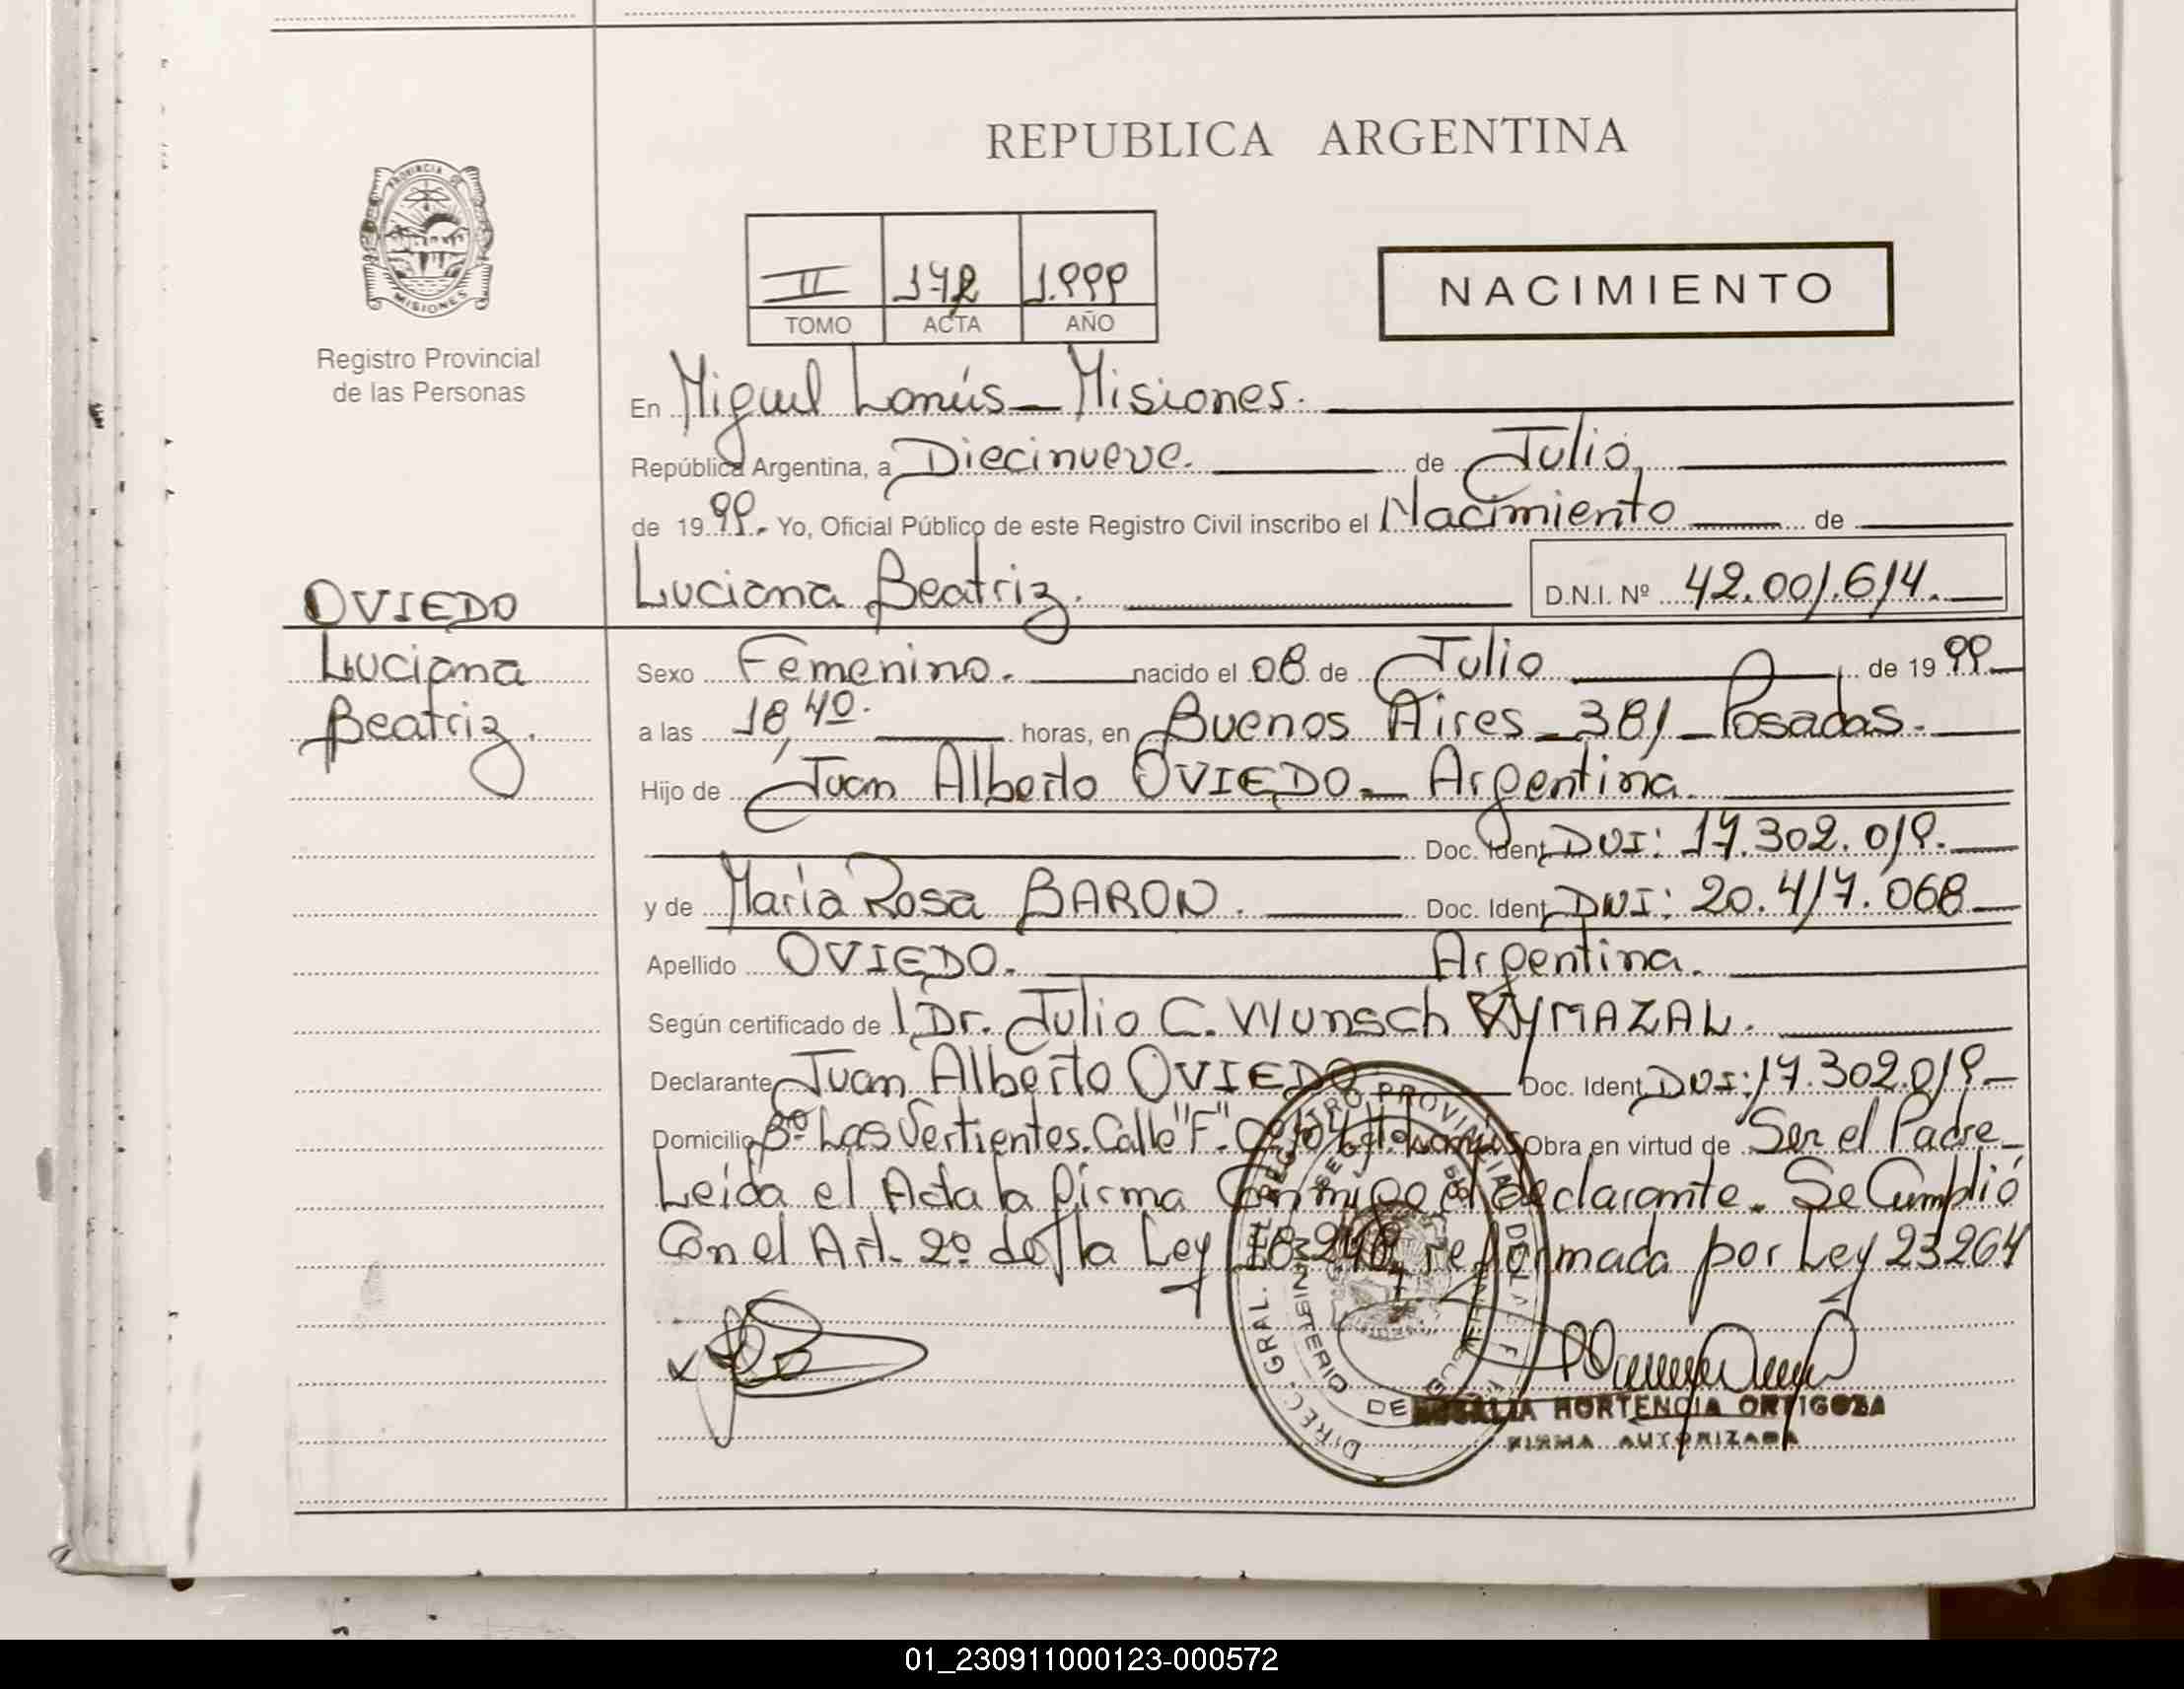 REPUBLICA ARGENTINA
PROVINCIA DE
MISIONES
Registro Provincial
de las Personas
II 172 1.999
TOMO ACTA AÑO
NACIMIENTO
En Miguel Lanús - Misiones.
República Argentina, a Diecinueve. de Julio,
de 1999.- Yo, Oficial Público de este Registro Civil inscribo el Nacimiento de
OVIEDO
Luciana
Beatriz.
Luciana Beatriz. D.N.I. Nº 42.001.614.
Sexo Femenino. nacido el 08 de Julio de 1999
a las 18,40. horas, en Buenos Aires - 381 - Posadas.
Hijo de Juan Alberto OVIEDO - Argentina.
Doc. Ident. DNI: 17.302.019.
y de María Rosa BARON. Doc. Ident. DNI: 20.417.068
Apellido OVIEDO. Argentina.
Según certificado de Dr. Julio C. Wunsch VYMAZAL.
Declarante Juan Alberto OVIEDO Doc. Ident. DNI: 17.302.019
Domicilio Bº Las Vertientes. Calle "F". Lanús Obra en virtud de Ser el Padre
Leída el Acta la firma Conmigo el declarante. Se Cumplió
Con el Art. 2º de la Ley 18.248, reformada por Ley 23264
DIREC. GRAL. DEL REGISTRO PROVINCIAL DE
MINISTERIO DE
HORTENCIA ORTIGOZA
FIRMA AUTORIZADA
01_230911000123-000572